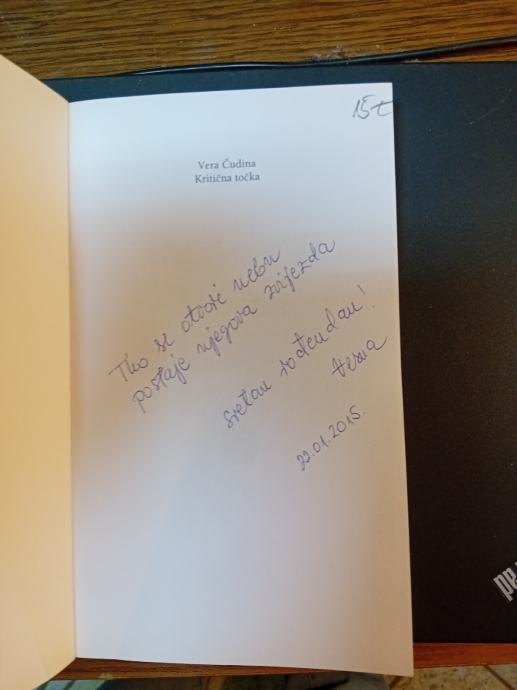 15 €
Vera Čudina
Kritična točka
Tko se otvori nebu
postaje njegova zvijezda
sretan rođendan!
Vesna
22.01.2015.